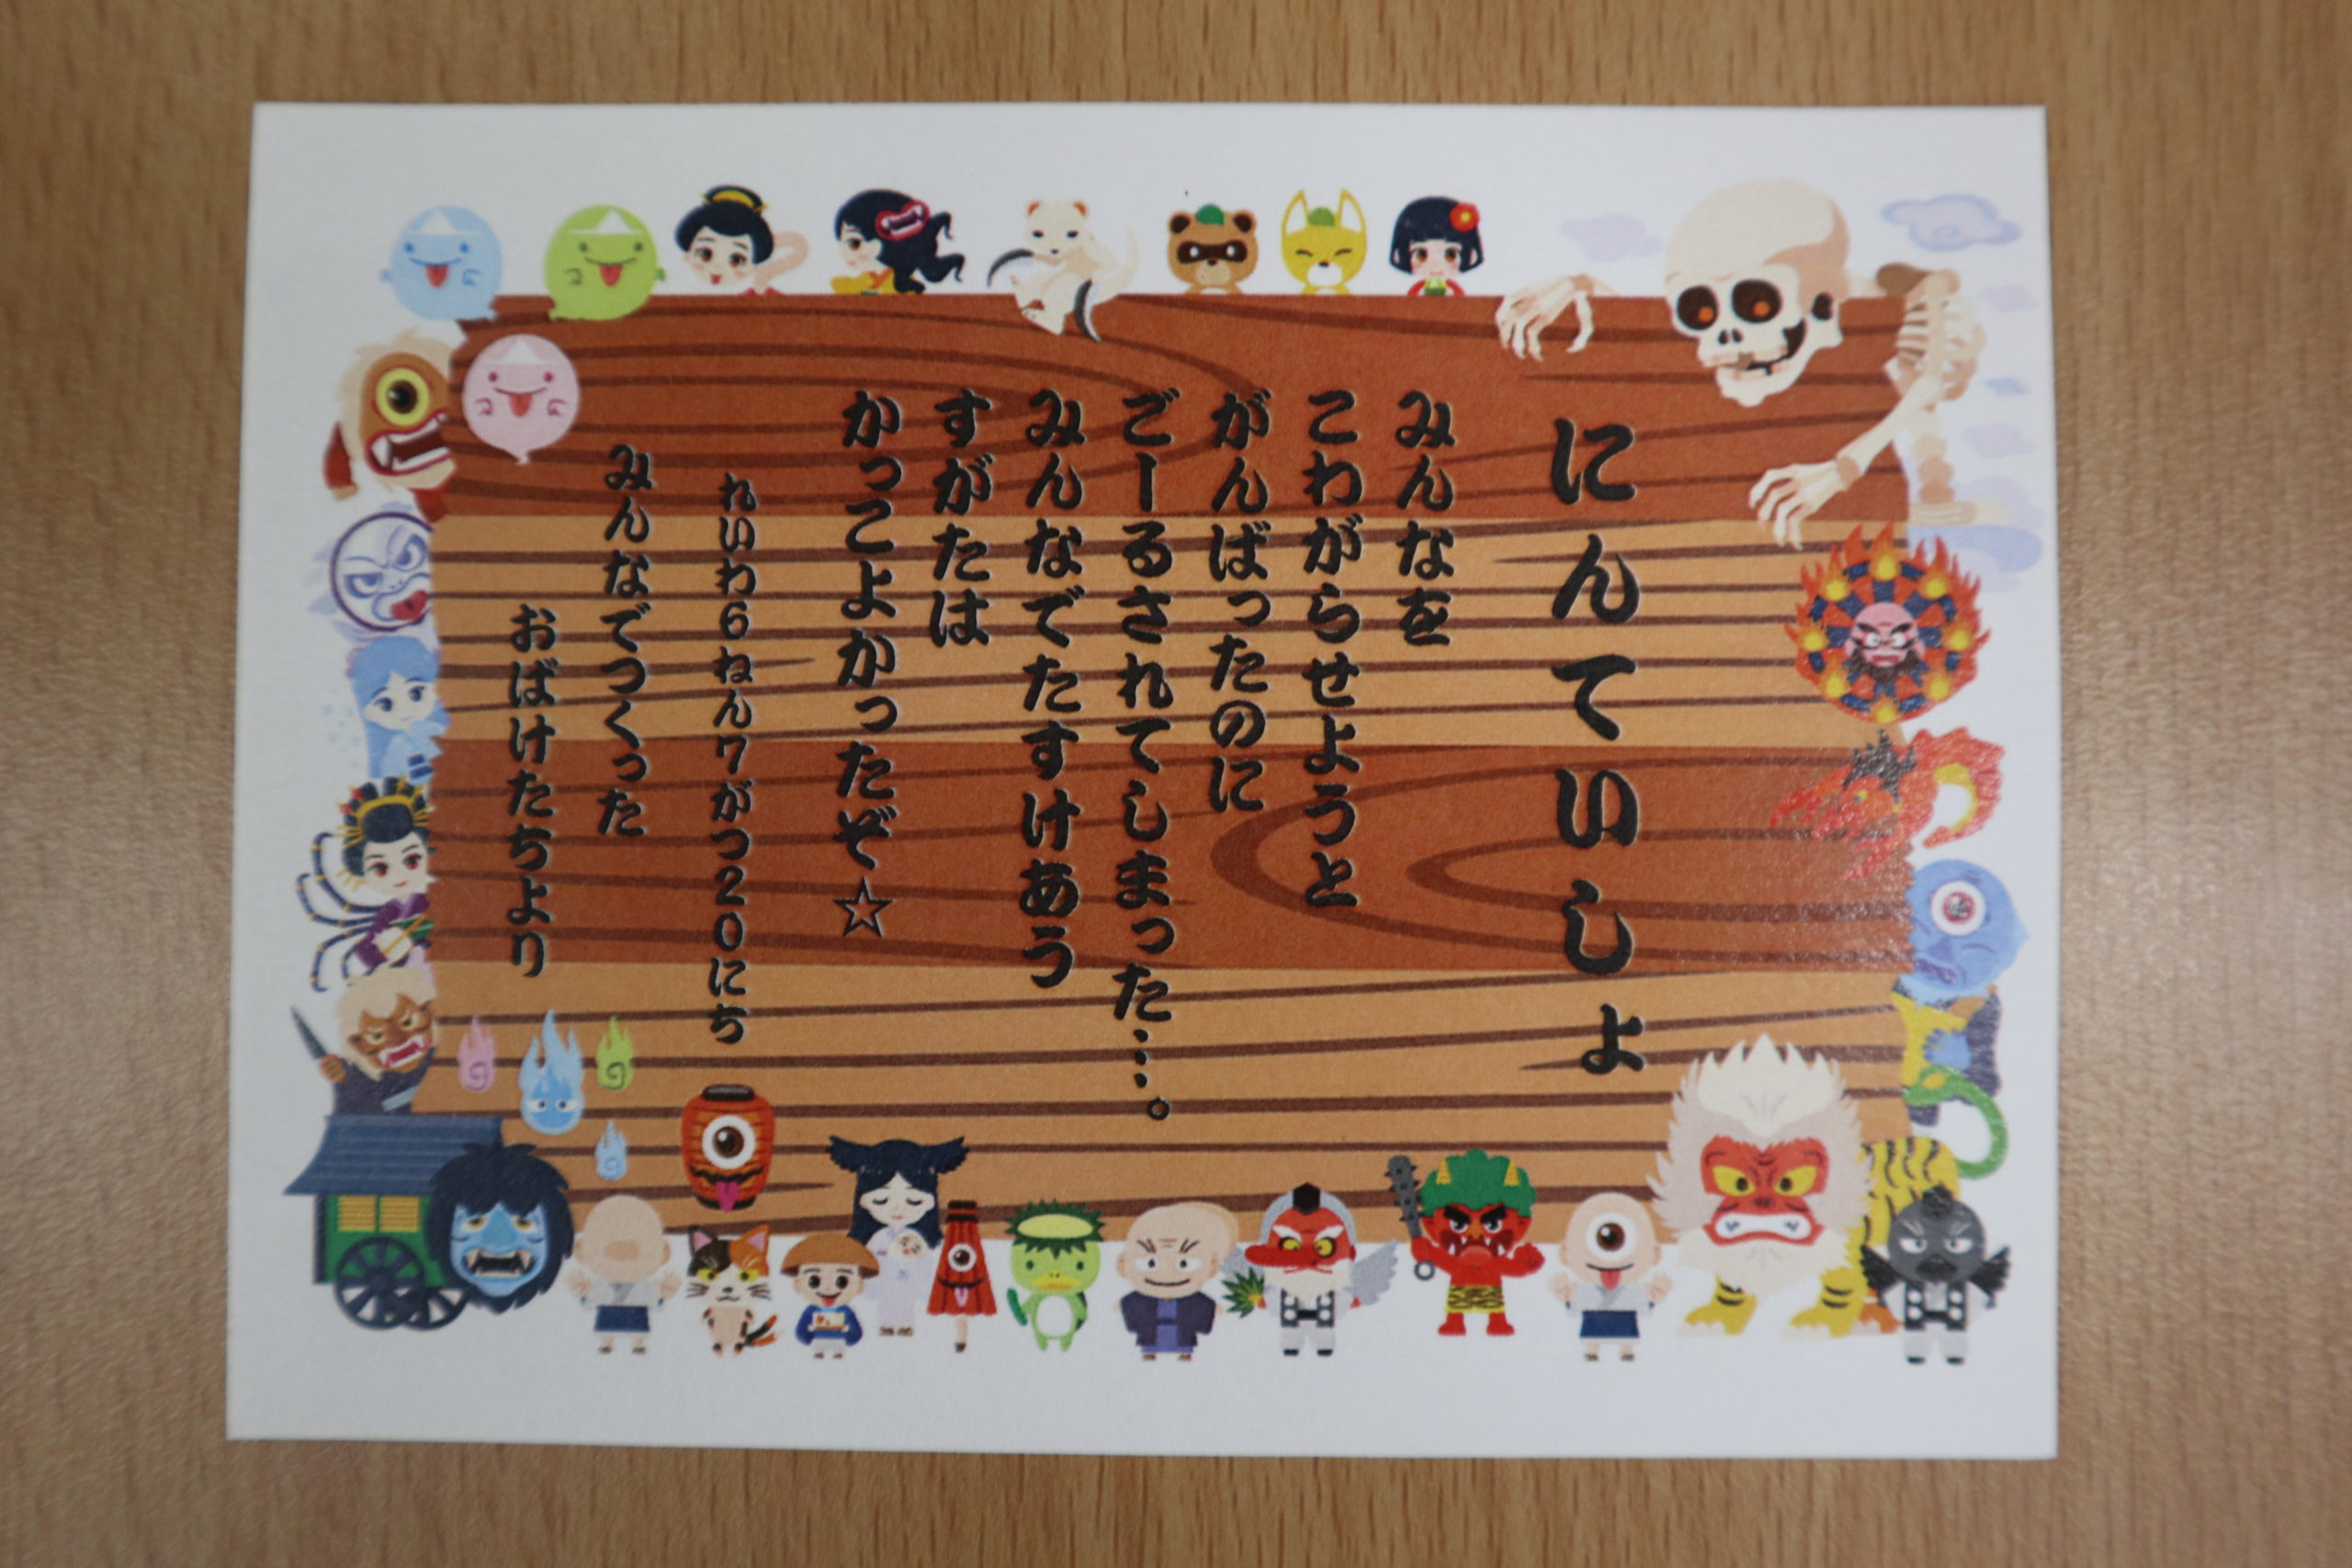 にんていしょ
みんなを
こわがらせようと
がんばったのに
ごーるされてしまった…。
みんなでたすけあう
すがたは
かっこよかったぞ☆
れいわ6ねん7がつ20にち
みんなでつくった
おばけたちより